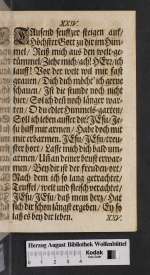 XXIV.
TAusend seuffzer steigen auf/
Höchster Gott zu deinem Him-
mel. Reiß mich aus den welt-ge-
tümmel/ Ziehe mich/ ach! HErr/ ich
lauff! Vor der welt wil mir fast
grauen/ Dich dich möcht' ich gerne
schauen. Ist die stunde noch nicht
hier/ Sol ich deß noch länger war-
ten/ O du edler Himmels-garten/
Soll ich leben ausser dir/ JEsu/ Je-
su hilff mir armen/ Habe doch mit
mir erbarmen. JEsu/ JEsu/ trau-
ster hort/ Lasse mich dich bald um-
armen/ Und an deiner brust erwar-
men/ Bey dir ist der freuden-ort/
Nach dem ich so lang getrachtet/
Teuffel/ welt und fleisch verachtet/
JEsu/ JEsu/ daß mein hertz/ Hat
sich dir schon längst ergeben/ Ey so
laß es bey dir leben.
XXV.
Herzog August Bibliothek Wolfenbüttel